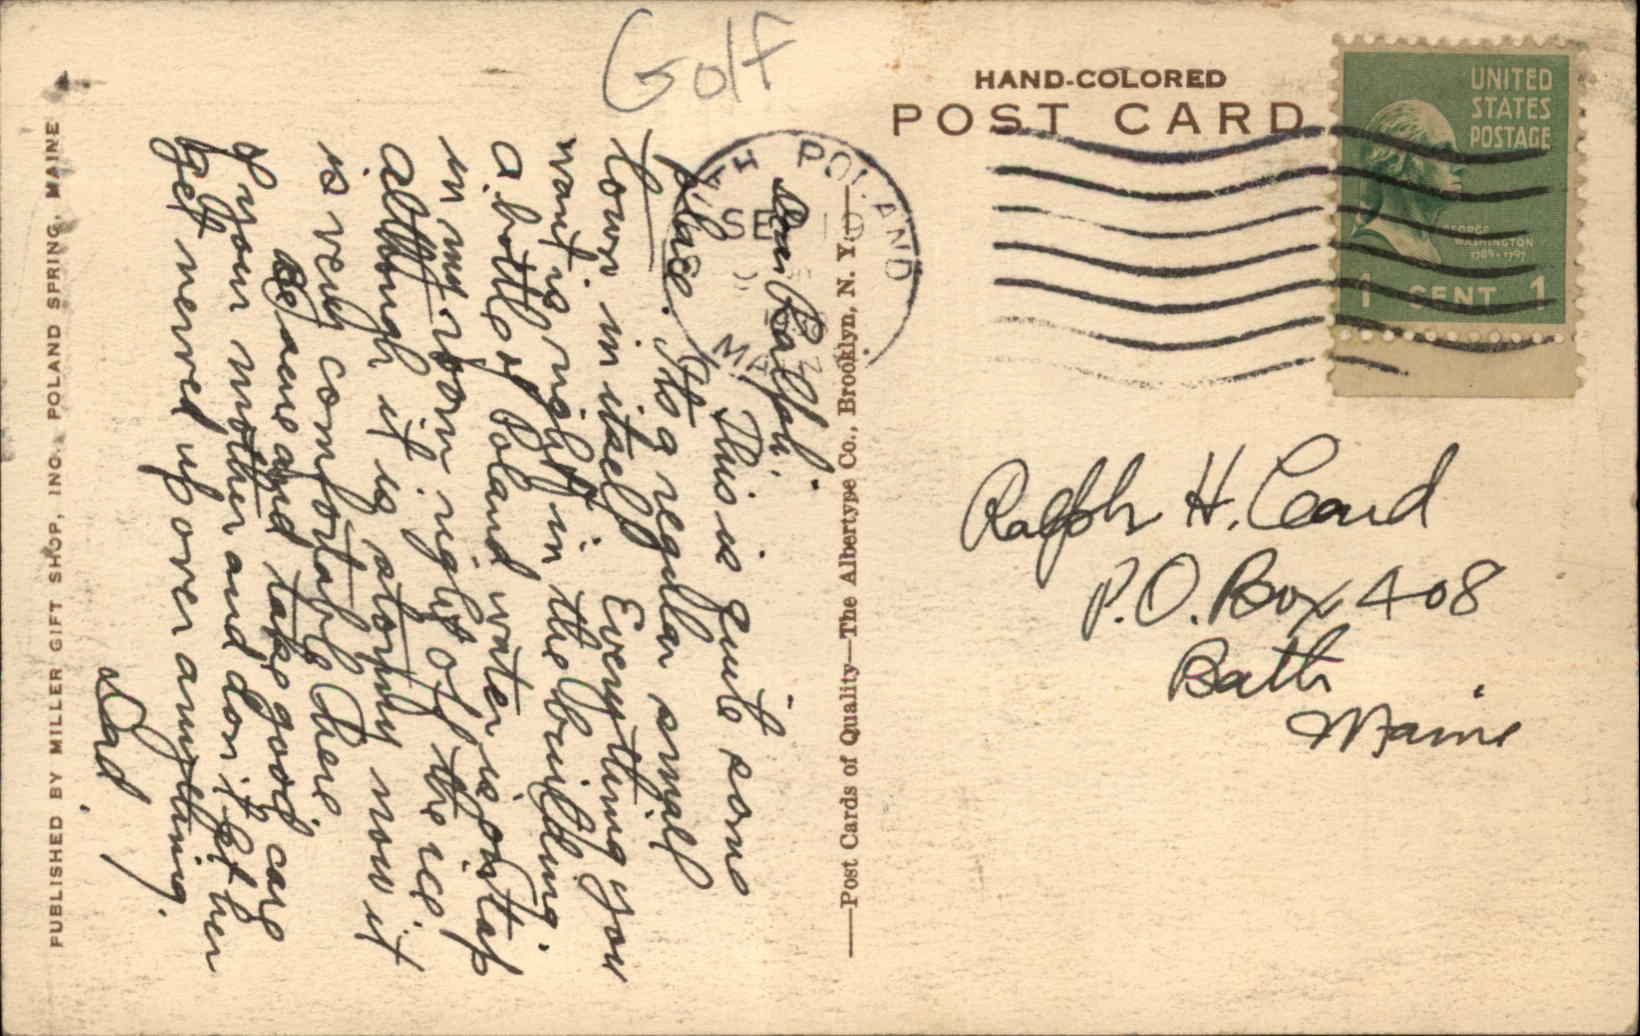 Golf
HAND-COLORED
POST CARD
UNITED
STATES
POSTAGE
GEORGE
WASHINGTON
1789-1797
1 CENT 1
POLAND
SEP 19
Ralph H. Card
P.O. Box 408
Bath
Maine
Dear Ralph:
This is quite some
place. It's a regular small
town in itself. Everything you
want is right in the building.
a bottle of Poland water is on tap
in my room right off the ice
although it is stormy now it
is very comfortable here.
Be sure and take good care
of your mother and don't let her
get nerved up over anything.
Dad.
—Post Cards of Quality—The Albertype Co., Brooklyn, N. Y.—
PUBLISHED BY MILLER GIFT SHOP, INC., POLAND SPRING, MAINE